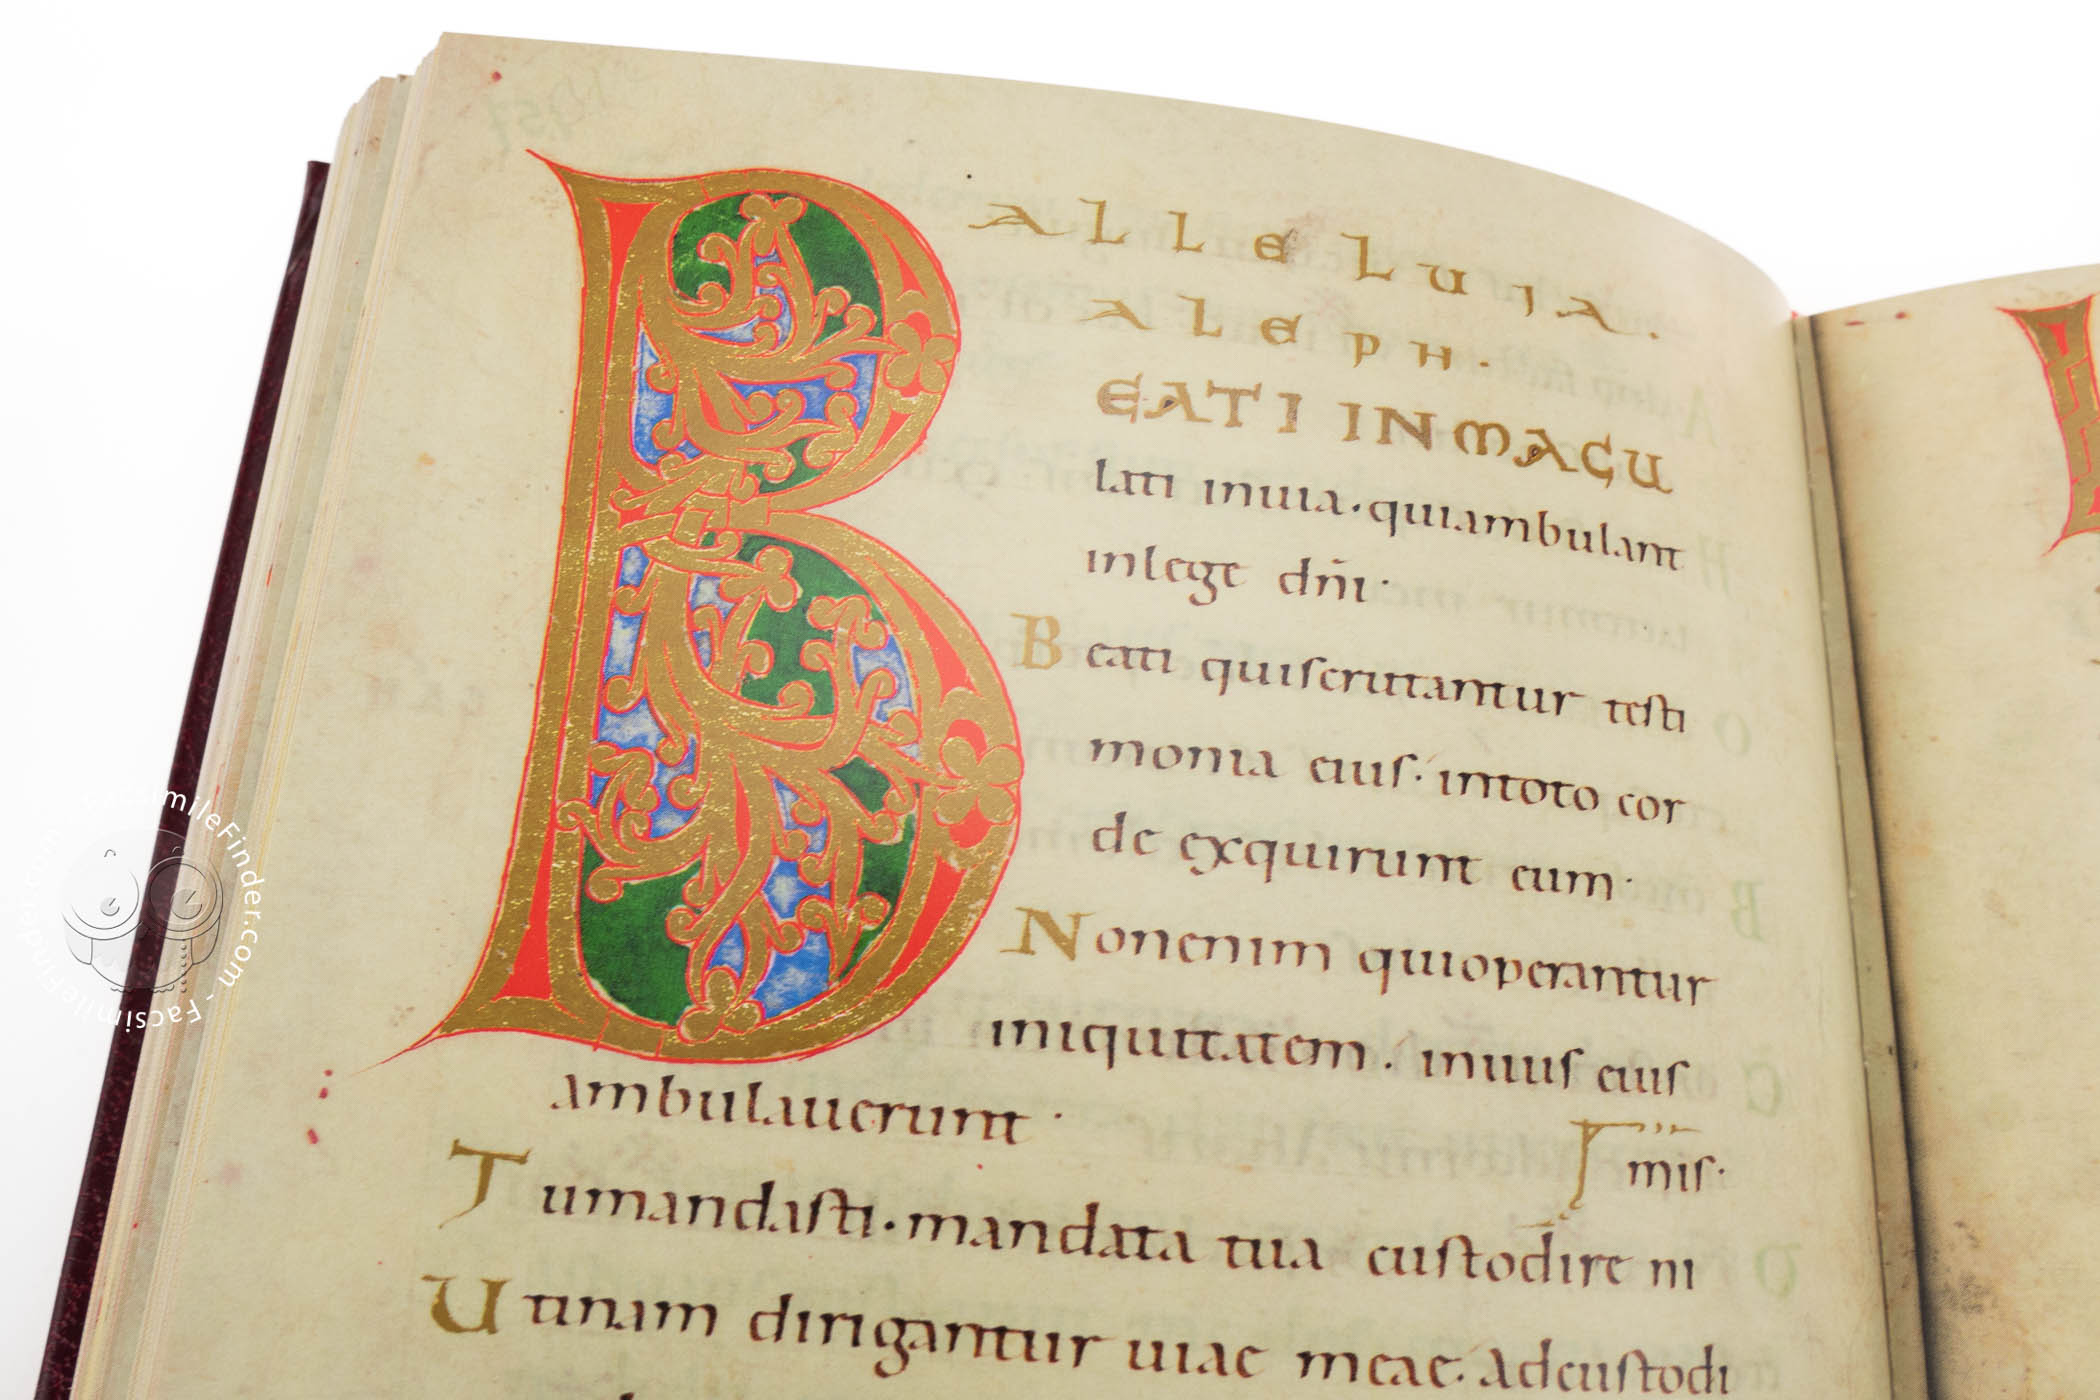 ALLELUIA.
ALEPH.
BEATI INMACU
lati inuia · quiambulant
inlege dñi·
Beati quiscrutantur testi
monia eius· intoto cor
de exquirunt eum·
Nonenim quioperantur
iniquitatem· inuiis eius
ambulauerunt·
mis·
Tumandasti · mandata tua custodire ni
Utinam dirigantur uiae meae· Adcustodi
FacsimileFinder.com - FacsimileFinder.com